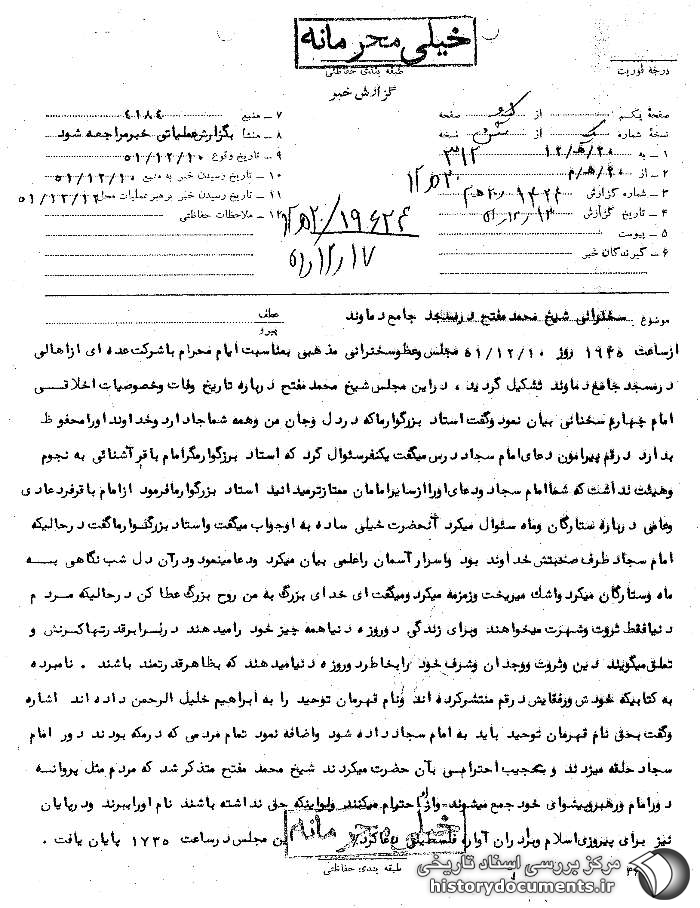 خیلی محرمانه
طبقه بندی حفاظتی
درجهٔ فوریت
گزارش خبر
صفحهٔ یکم از صفحه
نسخهٔ شماره از نسخه
۱ ـ به ۳۱۲
۲ ـ از
۳ ـ شماره گزارش
۴ ـ تاریخ گزارش
۵ ـ پیوست
۶ ـ گیرندگان خبر
۷ ـ منبع ۴۱۸۴
۸ ـ منشأ بگزارش عملیاتی خبر مراجعه شود
۹ ـ تاریخ وقوع ۵۱/۱۲/۱۰
۱۰ ـ تاریخ رسیدن خبر به منبع ۵۱/۱۲/۱۰
۱۱ ـ تاریخ رسیدن خبر برهبر عملیات محل ۵۱/۱۲/۱۲
۱۲ ـ ملاحظات حفاظتی
۱۹۶۲۴
۵۱/۱۲/۱۷
موضوع سخنرانی شیخ محمد مفتح در مسجد جامع دماوند
عطف
پیرو
از ساعت ۱۹۴۵ روز ۵۱/۱۲/۱۰ مجلس وعظ و سخنرانی مذهبی بمناسبت ایام محرام با شرکت عده ای از اهالی
در مسجد جامع دماوند تشکیل گردید ، در این مجلس شیخ محمد مفتح درباره تاریخ وفات و خصوصیات اخلاقی
امام چهارم سخنانی بیان نمود و گفت استاد بزرگوار ما که در دل و جان من و همه شما جا دارد و خداوند او را محفوظ
بدارد در قم پیرامون دعای امام سجاد درس میگفت یکنفر سئوال کرد که استاد بزرگوار مگر امام باقر آشنائی به نجوم
و هیئت نداشت که شما امام سجاد و دعای او را از سایر امامان ممتازتر میدانید استاد بزرگوار ما فرمود از امام باقر فرد عادی
وعامی درباره ستارگان وماه سئوال میکرد آنحضرت خیلی ساده به او جواب میگفت و استاد بزرگوار ما گفت در حالیکه
امام سجاد طرف صحبتش خداوند بود و اسرار آسمان را علمی بیان میکرد ودعا مینمود و در آن دل شب نگاهی به
ماه وستارگان میکرد واشک میریخت وزمزمه میکرد و میگفت ای خدای بزرگ به من روح بزرگ عطا کن در حالیکه مردم
دنیا فقط ثروت وشهرت میخواهند وبرای زندگی دو روزه دنیا همه چیز خود را میدهند در برابر قدرتها کرنش و
تملق میگویند دین وثروت و وجدان وشرف خود را بخاطر دو روزه دنیا میدهند که بظاهر قدرتمند باشند . نامبرده
به کتابیکه خودش ورفقایش در قم منتشر کرده اند ونام قهرمان توحید را به ابراهیم خلیل الرحمن داده اند اشاره
وگفت بحق نام قهرمان توحید باید به امام سجاد داده شود و اضافه نمود تمام مردمی که در مکه بودند دور امام
سجاد حلقه میزدند و بعجیب احترامی بآن حضرت میکردند شیخ محمد مفتح متذکر شد که مردم مثل پروانه
دور امام ورهبر وپیشوای خود جمع میشوند و از او احترام میکنند ولو اینکه حق نداشته باشند نام او را ببرند ودر پایان
نیز برای پیروزی اسلام وبرادران آواره فلسطینی دعا کرد این مجلس در ساعت ۱۷۳۵ پایان یافت .
خیلی محرمانه
طبقه بندی حفاظتی
مرکز بررسی اسناد تاریخی
historydocuments.ir